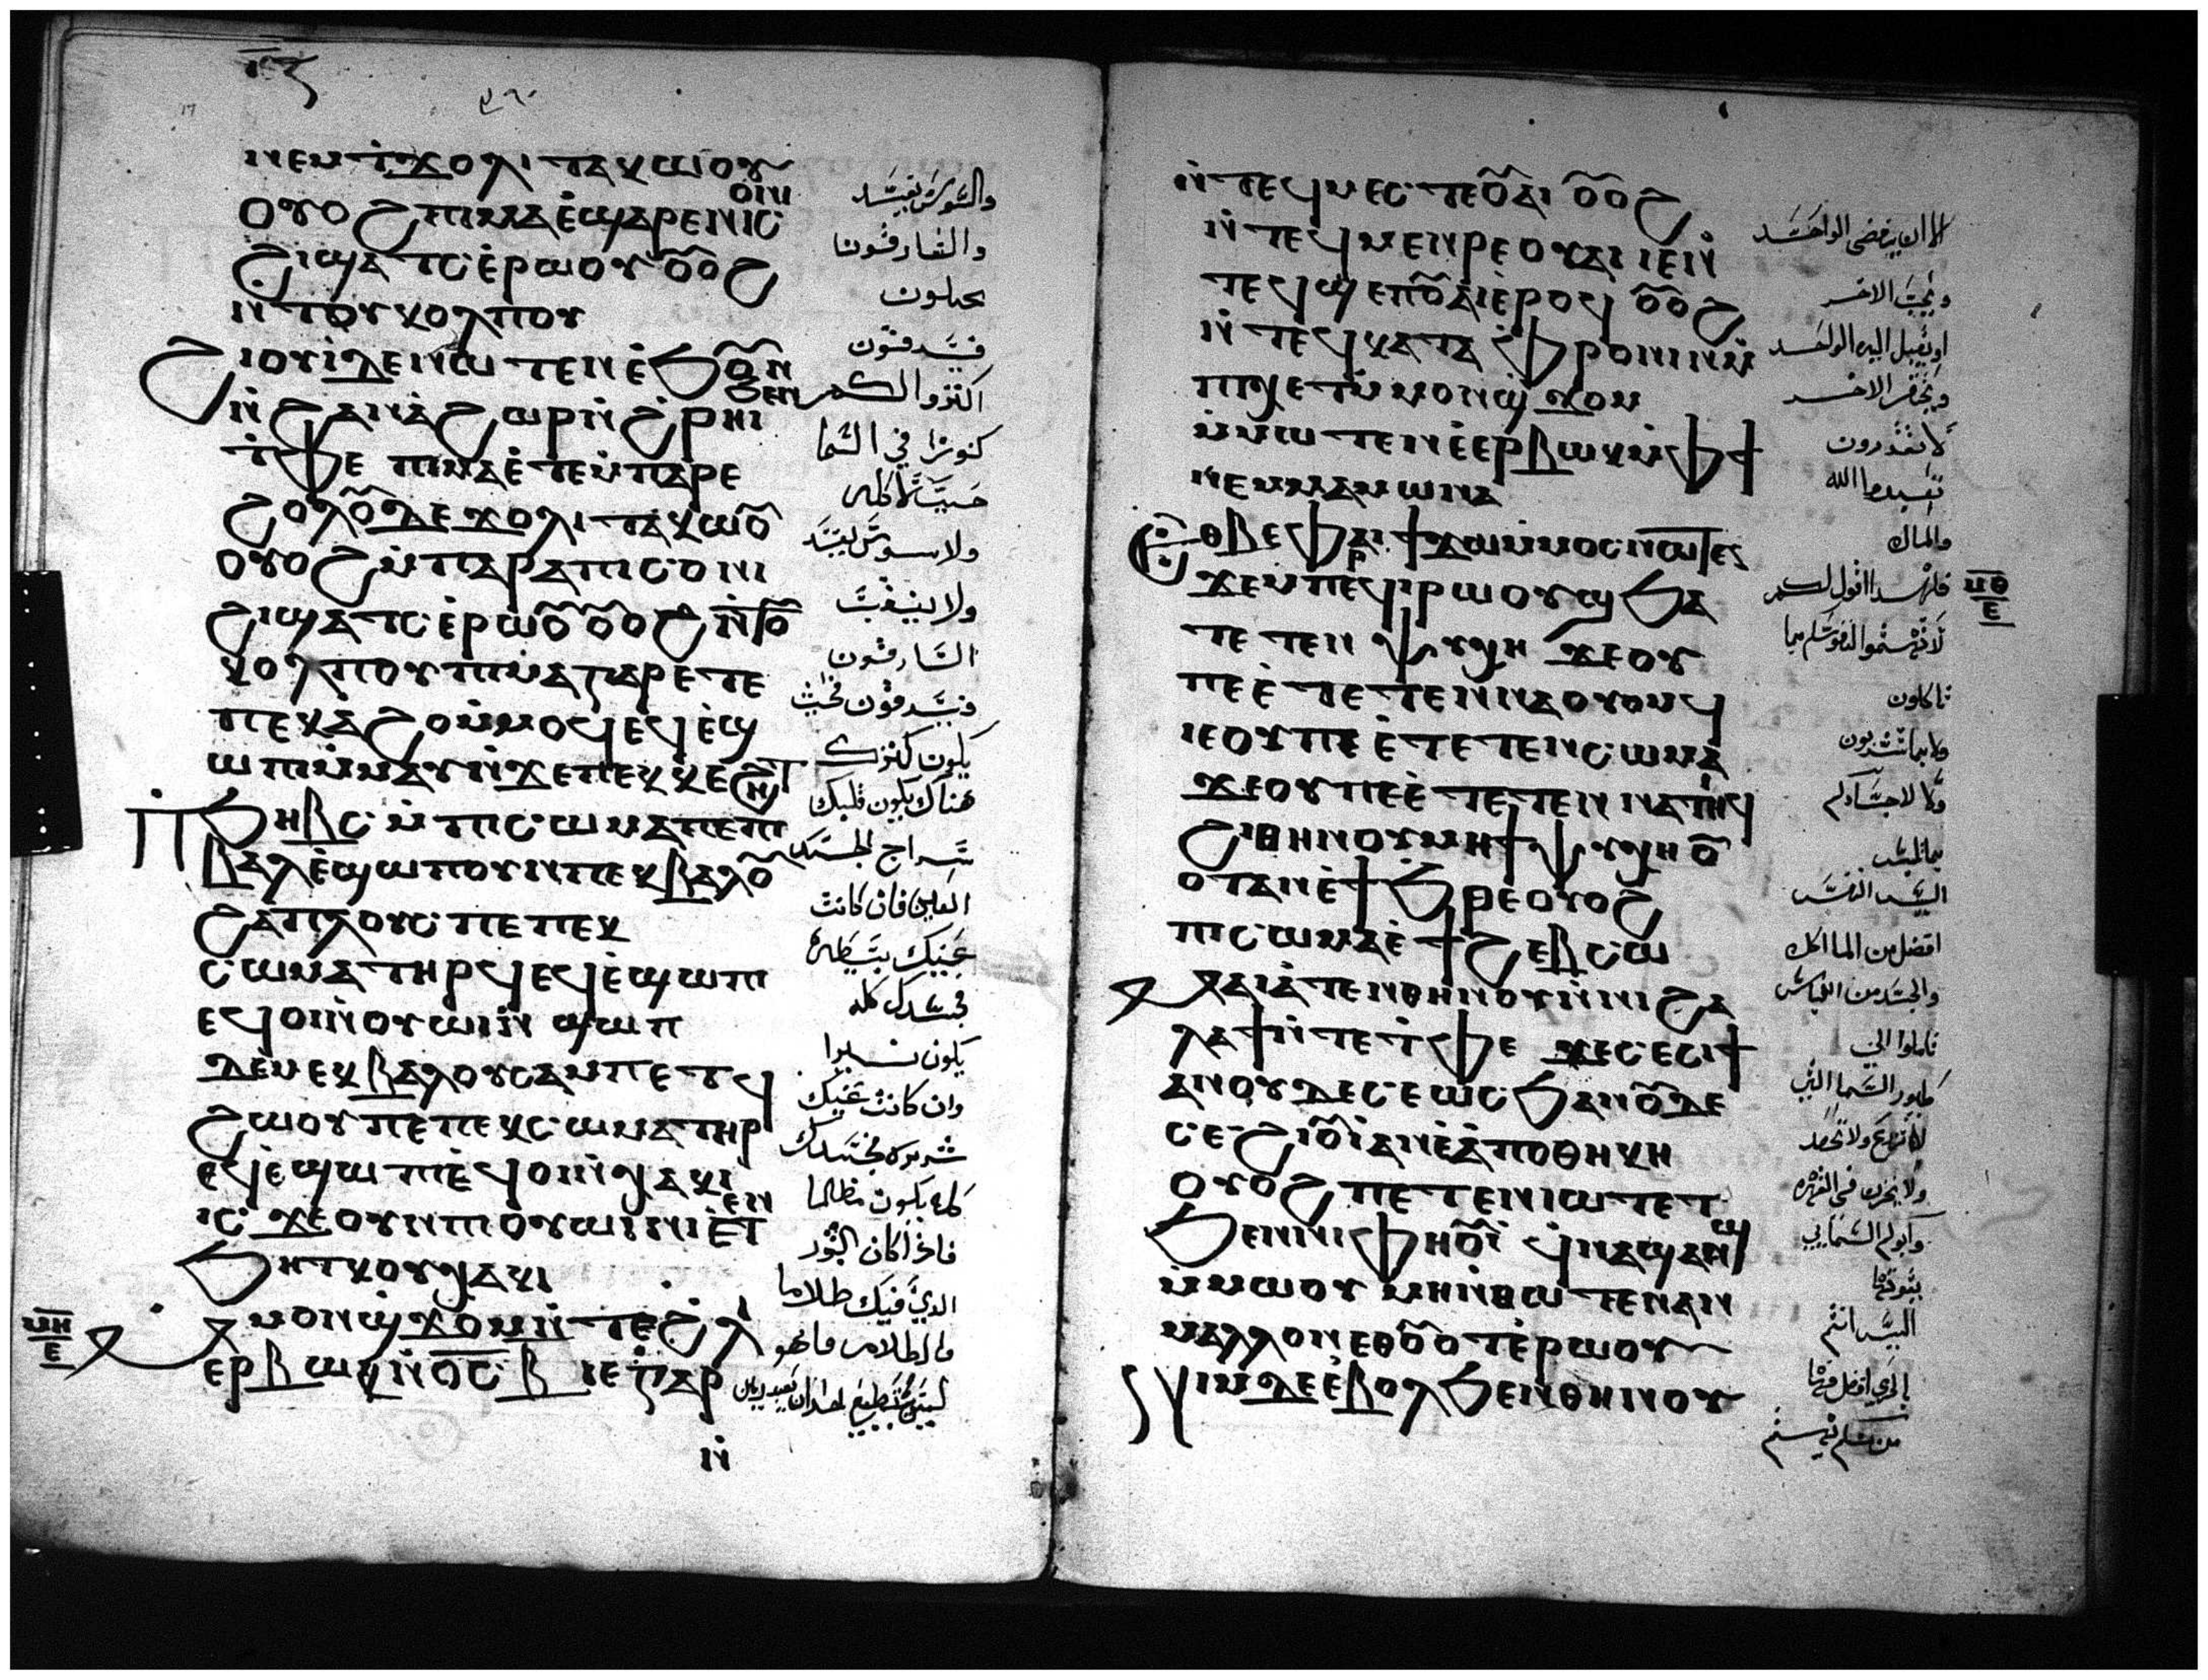 ⲛⲉⲙϯϫⲟⲗⲓ ⲧⲁⲕⲱⲟⲩ
ⲟⲩⲟϩ ⲡⲓⲙⲁ ⲉϣⲁⲣⲉⲛⲓⲥ ⲟⲓⲛ
ϩⲓϣⲁⲧⲥ ⲉⲣⲱⲟⲩ ⲟⲩⲟϩ
ⲛⲧⲟⲩⲕⲟⲗⲡⲟⲩ
ϩⲓⲟⲩⲓ ⲇⲉ ⲛⲱⲧⲉⲛ ⲉϧⲟⲩⲛ
ⲛϩⲁⲛⲁϩⲱⲣ ⲛϩⲣⲏⲓ ϧⲉⲛ
ⲧⲫⲉ ⲡⲓⲙⲁ ⲉⲧⲉⲙⲡⲁⲣⲉ
ϩⲟⲗⲟⲩ ⲇⲉ ϫⲟⲗⲓ ⲧⲁⲕⲱⲟⲩ
ⲟⲩⲟϩ ⲙⲡⲁⲣⲁⲡⲓⲥⲟⲛⲓ
ϩⲓϣⲁⲧⲥ ⲉⲣⲱⲟⲩ ⲟⲩⲟϩ ⲛⲧⲟⲩ
ⲕⲟⲗⲡⲟⲩ ⲡⲓⲙⲁ ⲅⲁⲣ ⲉⲧⲉ
ⲡⲉⲕⲁϩⲟ ⲙⲙⲟϥ ⲉϥⲉϣ
ⲱⲡⲓ ⲙⲙⲁⲩ ⲛϫⲉⲡⲉⲕⲕⲉϩⲏⲧ
ⲡϧⲏⲃⲥ ⲙⲡⲓⲥⲱⲙⲁ ⲡⲉ ⲡⲓ
ⲃⲁⲗ ⲉϣⲱⲡ ⲟⲩⲛ ⲡⲉⲕⲃⲁⲗ ⲟⲩ
ϩⲁⲡⲗⲟⲩⲥ ⲡⲉ ⲡⲉⲕ
ⲥⲱⲙⲁ ⲧⲏⲣϥ ⲉϥⲉϣⲱⲡⲓ
ⲉϥⲟⲓ ⲛⲟⲩⲱⲓⲛⲓ ϣⲱⲡ
ⲇⲉ ⲙⲉⲕⲃⲁⲗ ⲟⲩⲥⲁⲙⲡⲉⲧϥ
ϩⲱⲟⲩ ⲡⲉ ⲡⲉⲕⲥⲱⲙⲁ ⲧⲏⲣ
ⲉϥⲉϣⲱⲡⲓ ⲉϥⲟⲓ ⲛⲭⲁⲕⲓ
ⲓⲥϫⲉ ⲟⲩⲛ ⲡⲓⲟⲩⲱⲓⲛⲓ ⲉⲧⲉⲛ
ϧⲏⲧⲕ ⲟⲩⲭⲁⲕⲓ
ⲙⲙⲟⲛ ϣϫⲟⲙ ⲛⲧⲉϩⲗⲓ
ⲉⲣⲃⲱⲕ ⲛⲟⲥ ⲃ ⲓⲉ ⲅⲁⲣ
ⲛ
والسوس يفسد
والسارقون
يحيلون
فيسرقون
اكنزوا لكم
كنوزا في السما
حيث لا اكله
ولا سوس يفسد
ولا ينقب
السارقون
فيسرقون فحيث
يكون كنزك
هناك يكون قلبك
سراج الجسد
العين فان كانت
عينك بسيطه
فجسدك كله
يكون نيرا
وان كانت عينك
شريره فجسدك
كله يكون مظلما
فاذا كان النور
الذي فيك ظلاما
فالظلام ما هو
ليس يستطيع احد ان يعبد ربين
ⲙⲏ
ⲉ
ⲛⲧⲉϥⲙⲉⲥⲧⲉ ⲟⲩⲁⲓ ⲟⲩⲟϩ
ⲛⲧⲉϥⲙⲉⲛⲣⲉ ⲟⲩⲁⲓ ⲓⲉ ⲛ
ⲧⲉϥϣⲉⲡ ⲟⲩⲁⲓ ⲉⲣⲟϥ ⲟⲩⲟϩ
ⲛⲧⲉϥⲕⲁⲧⲁⲫⲣⲟⲛⲓⲛ ⲙ
ⲡⲓⲭⲉⲧ ⲙⲙⲟⲛ ϣϫⲟⲙ
ⲙⲙⲱⲧⲉⲛ ⲉⲉⲣⲃⲱⲕ ⲙⲫϯ
ⲛⲉⲙ ⲙⲁⲙⲱⲛⲁ
ⲉⲑⲃⲉⲫⲁⲓ ϯϫⲱ ⲙⲙⲟⲥ ⲛⲱⲧⲉⲛ
ϫⲉ ⲙⲡⲉⲣϥⲓⲣⲱⲟⲩϣ ϧⲁ
ⲧⲉⲧⲉⲛⲯⲩⲭⲏ ϫⲉ ⲟⲩ
ⲡⲉ ⲉⲧⲉⲧⲉⲛⲛⲁⲟⲩⲟⲙϥ
ⲓⲉ ⲟⲩ ⲡⲉ ⲉⲧⲉⲧⲉⲛⲥⲱⲙⲁ
ϫⲉ ⲟⲩ ⲡⲉ ⲉⲧⲉⲧⲉⲛⲛⲁⲧⲏⲓϥ
ϩⲓⲑⲏⲛⲟⲩ ⲙⲏ ϯⲯⲩⲭⲏ ⲟⲩ
ⲟⲧ ⲁⲛ ⲉϯϧⲣⲉ ⲟⲩⲟϩ
ⲡⲓⲥⲱⲙⲁ ⲉϯϩⲉⲃⲥⲱ
ϫⲁⲓⲁⲧⲉⲛⲑⲏⲛⲟⲩ ⲛⲛⲓϩⲁ
ⲗⲁϯ ⲛⲧⲉ ⲧⲫⲉ ϫⲉ ⲥⲉⲥⲓϯ
ⲁⲛ ⲟⲩⲇⲉ ⲥⲉⲱⲥϧ ⲁⲛ ⲟⲩⲇⲉ
ⲥⲉϩⲓⲟⲩⲓ ⲁⲛ ⲉⲁⲡⲟⲑⲏⲕⲏ
ⲟⲩⲟϩ ⲡⲉⲧⲉⲛⲓⲱⲧ ⲉⲧ
ϧⲉⲛ ⲛⲓⲫⲏⲟⲩⲓ ϥⲛⲁϣⲁⲛϣ
ⲙⲙⲱⲟⲩ ⲙⲏ ⲛⲑⲱⲧⲉⲛ ⲁⲛ
ⲙⲁⲗⲗⲟⲛ ⲉⲑⲟⲩⲟⲧ ⲉⲣⲱⲟⲩ
ⲛⲓⲙ ⲇⲉ ⲉⲃⲟⲗ ϧⲉⲛⲑⲏⲛⲟⲩ
الا ان يبغض الواحد
ويحب الاخر
او يقبل الي الواحد
ويحتقر الاخر
لا تقدرون
تعبدوا الله
والمال
فلهذا اقول لكم
لا تهتموا لنفوسكم بما
تاكلون
ولا بما تشربون
ولا لاجسادكم
بما تلبس
اليس النفس
افضل من الماكل
والجسد من اللباس
تاملوا الي
طيور السما التي
لا تزرع ولا تحصد
ولا تخزن في الهره
وابوكم السمايي
يقوتها
اليس انتم
بالحري افضل منها
من منكم يهتم
ⲙⲑ
ⲉ